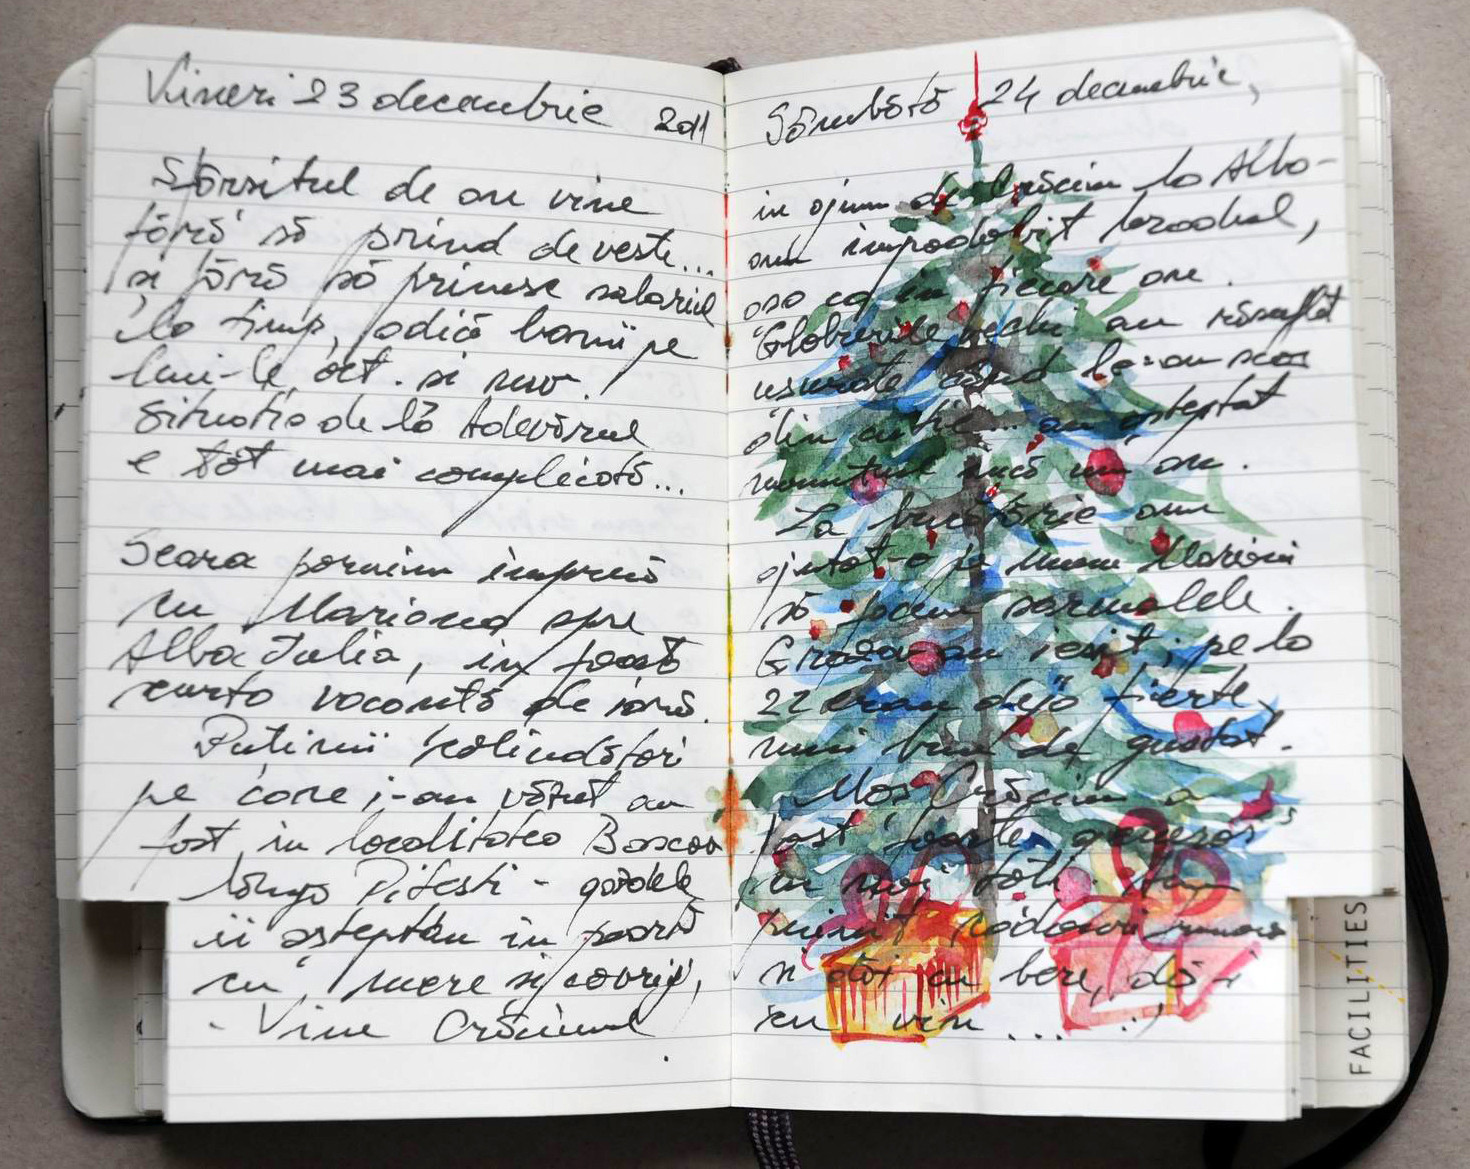 Vineri 23 decembrie 2011
Sfârșitul de an vine
fără să prind de veste...
și fără să primesc salariul
la timp, adică banii pe
luni-le oct. și nov.!
Situația de la Adevărul
e tot mai complicată...
Seara pornim împreună
cu Mariana spre
Alba Iulia, în
scurta vacanță de iarnă.
Puținii colindători
pe care i-am văzut au
fost în localitatea Bascov
lângă Pitești - gazdele
îi așteptau în poartă
cu mere și covrigi,
- Vine Crăciunul
Sâmbătă 24 decembrie,
in ajun de Crăciun la Alba-
am împodobit bradul,
așa ca în fiecare an.
Globurile vechi au răsuflat
ușurate când le-am scos
din cutie... au așteptat
momentul încă un an.
La bucătărie am
ajutat-o pe mama Marioni
să pună sarmalele.
Groza au ieșit, pe la
22 erau deja fierte,
numai bune de gustat.
Moș Crăciun a
fost foarte generos
cu noi toți. Am
primit cadouri
și atât cu bere, dă-i
cu vin ....
FACILITIES